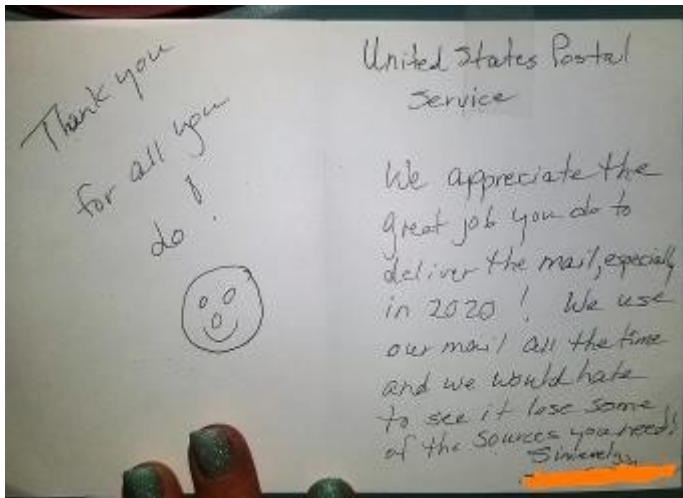 Thank you
for all you
do!
United States Postal
Service
We appreciate the
great job you do to
deliver the mail, especially
in 2020! We use
our mail all the time
and we would hate
to see it lose some
of the sources you need!
Sincerely,